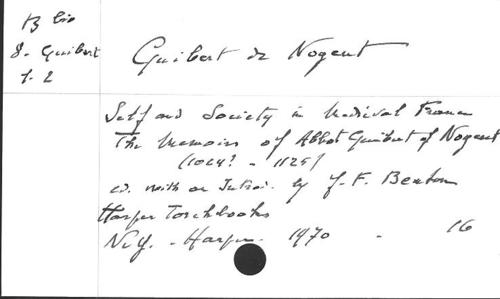 B bio
8. Guibert
1. 2
Guibert de Nogent
Self and Society in Medieval France
The Memoirs of Abbot Guibert of Nogent
(1064? - 1125)
ed. with an Introd. by J. F. Benton
Harper Torchbooks
N.Y. - Harper. 1970 - 16